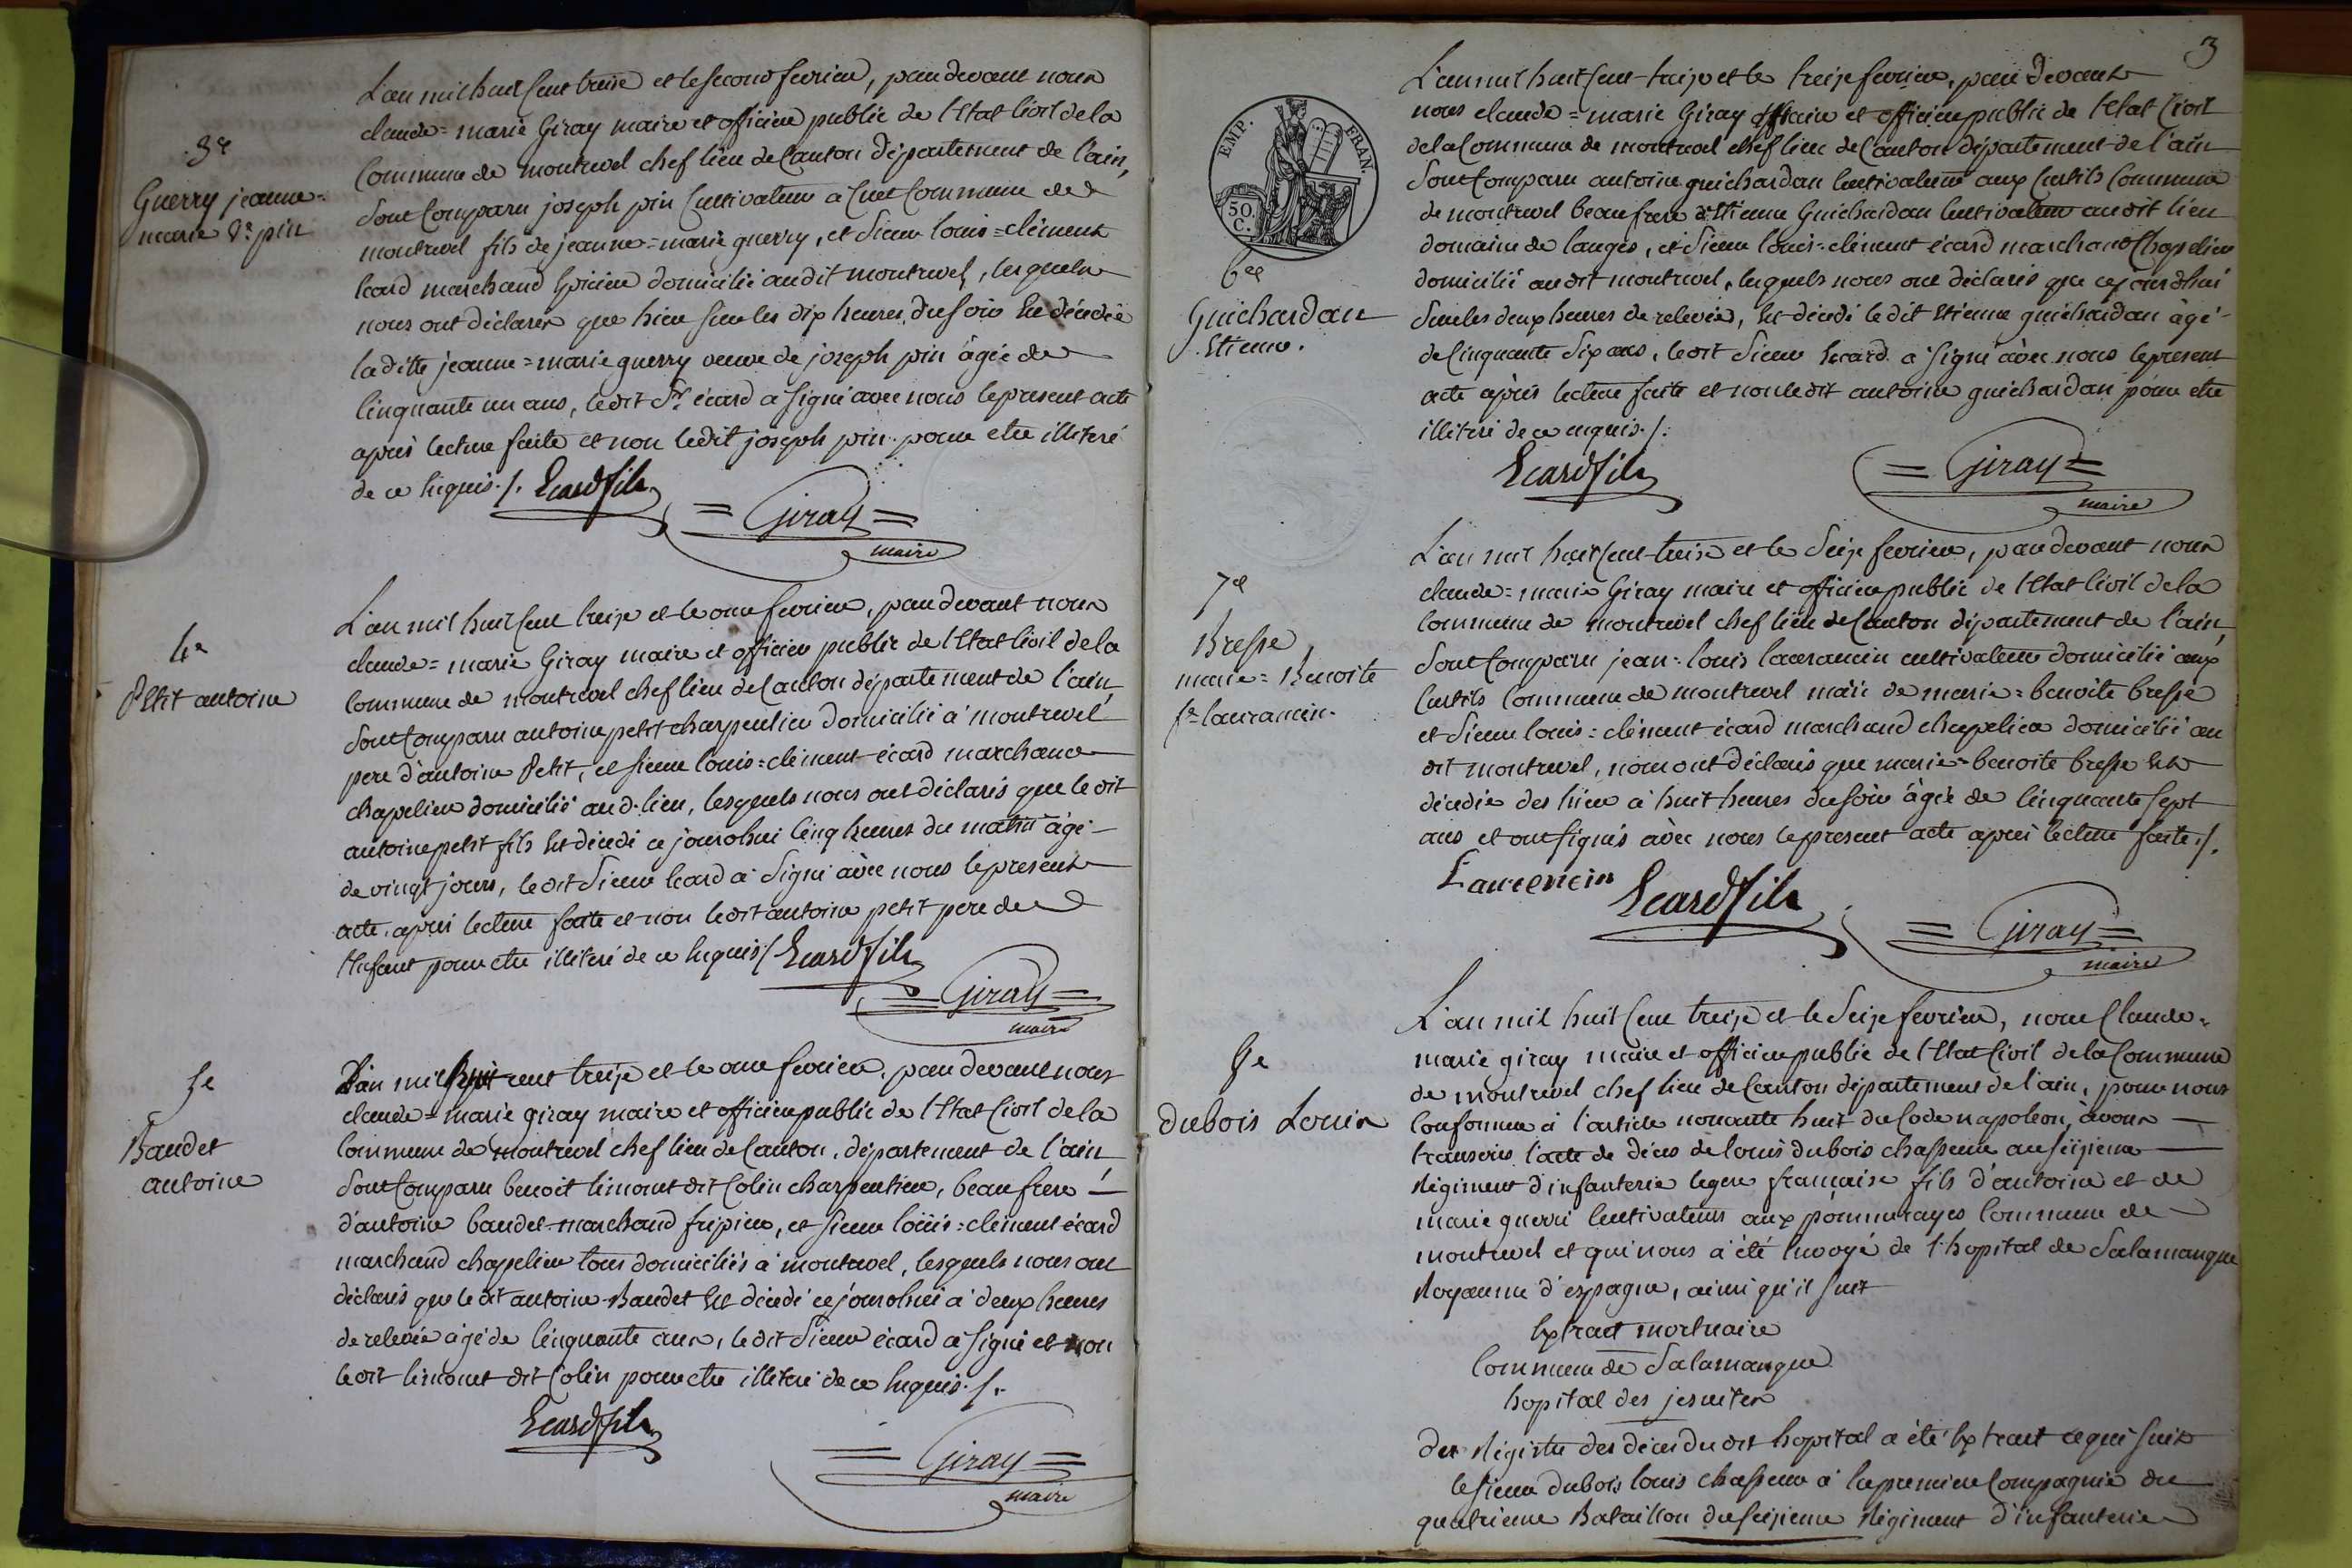 3e
Guerry jeanne=
marie ve pin
L'an mil huit cent treise et le second fevrier, par devant nous
claude=marie Giray maire et officier public de l'Etat Civil de la
Commune de montrevel chef lieu de Canton département de l'ain,
Sont Comparu joseph pin Cultivateur a Cuet Commune de
montrevel fils de jeanne=marie guerry, et Sieur louis=clément
Ecard marchand Epicier domicilié audit montrevel, lesquels
nous ont déclarés que hier sur les dix heures du soir Est décedée
la ditte jeanne=marie guerry veuve de joseph pin âgée de
Cinquante un ans, ledit Sr. écard a signé avec nous le present acte
après lecture faite et non ledit joseph pin pour etre illiteré
de ce Enquis ./. Ecard fils
= Giray =
maire
4e
Petit antoine
L'an mil huit cent treize et le onze fevrier, par devant nous
claude=marie Giray maire et officier public de l'Etat Civil de la
Commune de montrevel chef lieu de Canton département de l'ain,
Sont Comparu antoine petit charpentier domicilié à montrevel
pere d'antoine Petit, et sieur louis=clément écard marchand
chapelier domicilié aud. lieu, lesquels nous ont déclarés que le dit
antoine petit fils Est décédé ce jourdhui Cinq heures du matin âgé
de vingt jours, le dit Sieur Ecard a Signé avec nous le present
acte après lecture faite et non le dit antoine petit pere de
l'Enfant pour etre illiteré de ce Enquis ./. Ecard fils
= Giray =
maire
5e
Baudet
antoine
L'an mil huit cent treize et le onze fevrier, par devant nous
claude=marie giray maire et officier public de l'Etat Civil de la
Commune de montrevel chef lieu de Canton, département de l'ain
Sont Comparu benoit limonet dit Colin charpentier, beau frere
d'antoine baudet marchand fripier, et sieur louis=clément écard
marchand chapelier tous domiciliés à montrevel, lesquels nous ont
déclarés que le dit antoine Baudet Est décédé ce jourdhui à deux heures
de relevée âgé de Cinquante ans, le dit Sieur écard a signé et non
le dit limonet dit Colin pour etre illiteré de ce Enquis ./.
Ecard fils
= Giray =
maire
3
EMP. FRAN.
50. C.
6ee
Guichardan
Etienne.
L'an mil huit cent treize et le treize fevrier, par devant
nous claude=marie Giray maire et officier public de l'Etat Civil
de la Commune de montrevel chef lieu de Canton département de l'ain
Sont Comparu antoine guichardan Cultivateur aux Curtils Commune
de montrevel beau frere d'Etienne Guichardan Cultivateur audit lieu
domaine de langes, et Sieur louis=clément écard marchand Chapelier
domicilié audit montrevel, lesquels nous ont déclarés que ce jourdhui
Sur les deux heures de relevée, Est décédé le dit Etienne guichardan âgé
de Cinquante Six ans, le dit Sieur Ecard a Signé avec nous le present
acte après lecture faite et non le dit antoine guichardan pour etre
illiteré de ce enquis ./.
Ecard fils
= Giray =
maire
7e
Bresse
marie=Benoite
fe laurancin.
L'an mil huit cent treize et le Seize fevrier, par devant nous
claude=marie Giray maire et officier public de l'Etat Civil de la
Commune de montrevel chef lieu de Canton département de l'ain,
Sont Comparu jean=louis laurancin cultivateur domicilié aux
Curtils Commune de montrevel mari de marie=benoite bresse
et Sieur louis=clément écard marchand chapelier domicilié au
dit montrevel, nous ont déclarés que marie=benoite bresse Est
décédée des hier à huit heures du soir âgée de Cinquante sept
ans et ont signés avec nous le present acte après lecture faite ./.
Laurencin Ecard fils
= Giray =
maire
8e
Dubois Louis
L'an mil huit Cent treize et le Seize fevrier, nous Claude=
marie giray maire et officier public de l'Etat Civil de la Commune
de montrevel chef lieu de Canton département de l'ain, pour nous
Conformer à l'article nonante huit du Code napoleon, avons
transcris l'acte de décès de louis dubois chasseur au seizieme
Régiment d'infanterie legere française fils d'antoine et de
marie guerri Cultivateurs aux pommerayes Commune de
montrevel et qui nous a été Envoyé de l'hopital de Salamanque
Royaume d'espagne, ainsi qu'il suit
Extrait mortuaire
Commune de Salamanque
hopital des jesuites
Du Registre des décès du dit hopital a été Extrait ce qui suit
le sieur dubois louis chasseur à la premiere Compagnie du
quatrieme Bataillon du seizieme Régiment d'infanterie